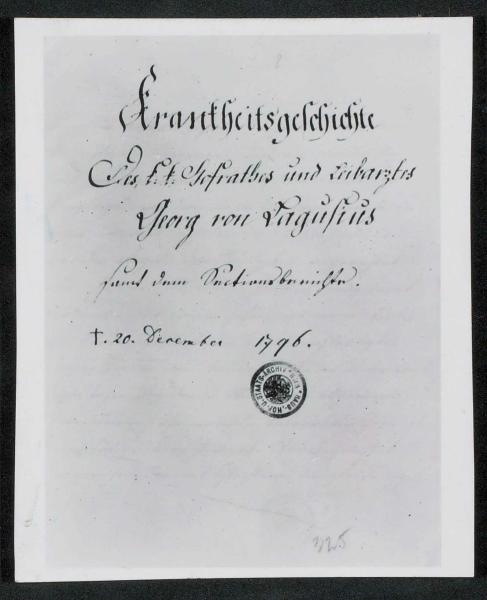 Krankheitsgeschichte
Des k. k. Hofrathes und Leibarztes
Georg von Lagusius
samt dem Sectionsberichte.
†. 20. December 1796.
HAUS-, HOF- U. STAATS-ARCHIV WIEN
325